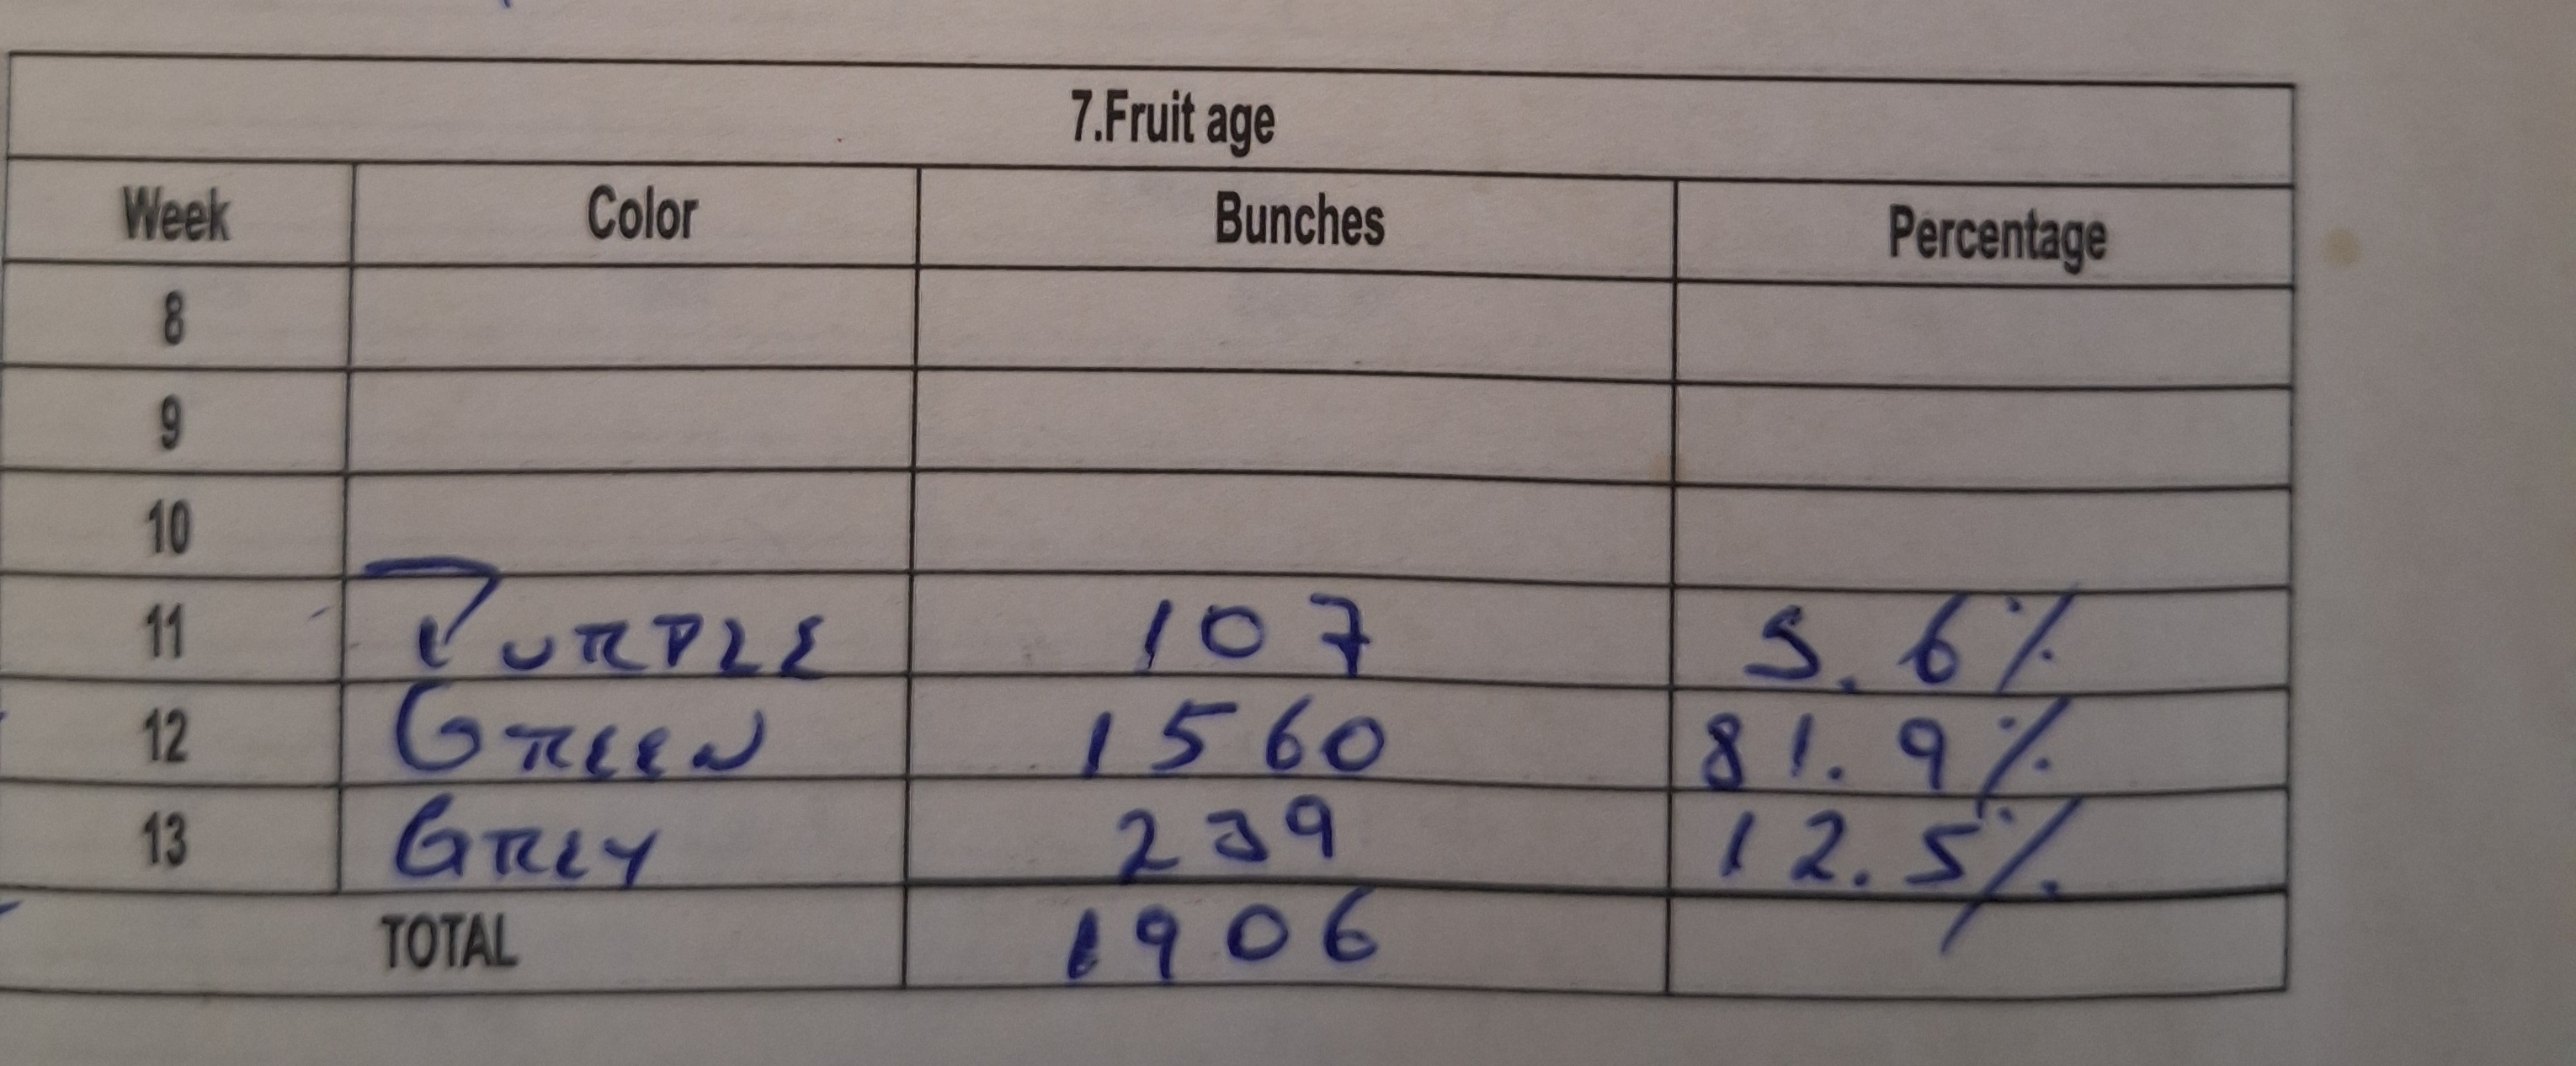 7.Fruit age
Week Color Bunches Percentage
8
9
10
11 PURPLE 107 5.6%
12 GREEN 1560 81.9%
13 GREY 239 12.5%
TOTAL 1906